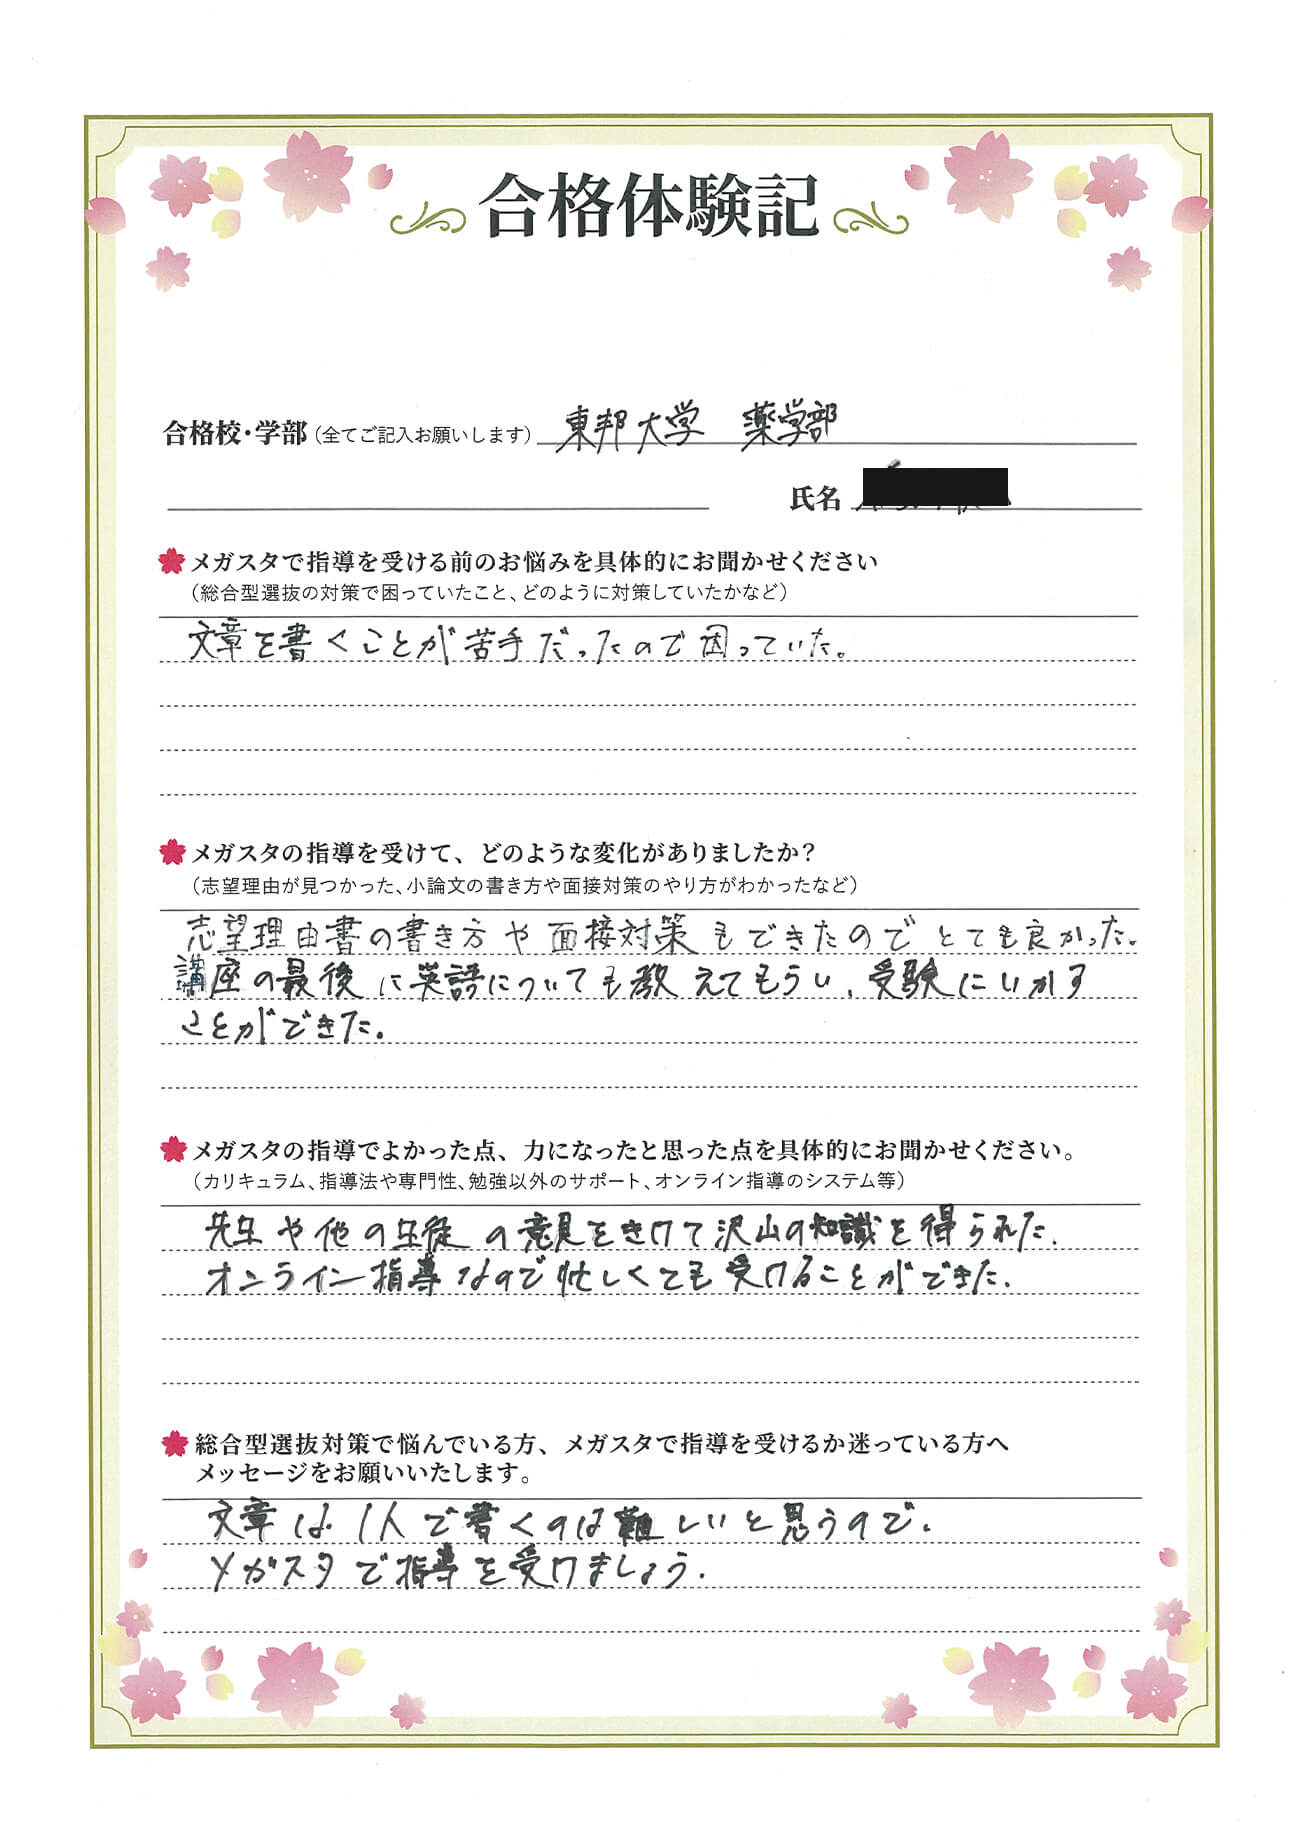 合格体験記
合格校・学部（全てご記入お願いします） 東邦大学 薬学部
氏名
メガスタで指導を受ける前のお悩みを具体的にお聞かせください
（総合型選抜の対策で困っていたこと、どのように対策していたかなど）
文章を書くことが苦手だったので困っていた。
メガスタの指導を受けて、どのような変化がありましたか？
（志望理由が見つかった、小論文の書き方や面接対策のやり方がわかったなど）
志望理由書の書き方や面接対策もできたのでとても良かった。
講座の最後に英語についても教えてもらい、受験にいかす
ことができた。
メガスタの指導でよかった点、力になったと思った点を具体的にお聞かせください。
（カリキュラム、指導法や専門性、勉強以外のサポート、オンライン指導のシステム等）
先生や他の生徒の意見をきけて沢山の知識を得られた。
オンライン指導なので忙しくても受けることができた。
総合型選抜対策で悩んでいる方、メガスタで指導を受けるか迷っている方へ
メッセージをお願いいたします。
文章は1人で書くのは難しいと思うので、
メガスタで指導を受けましょう。